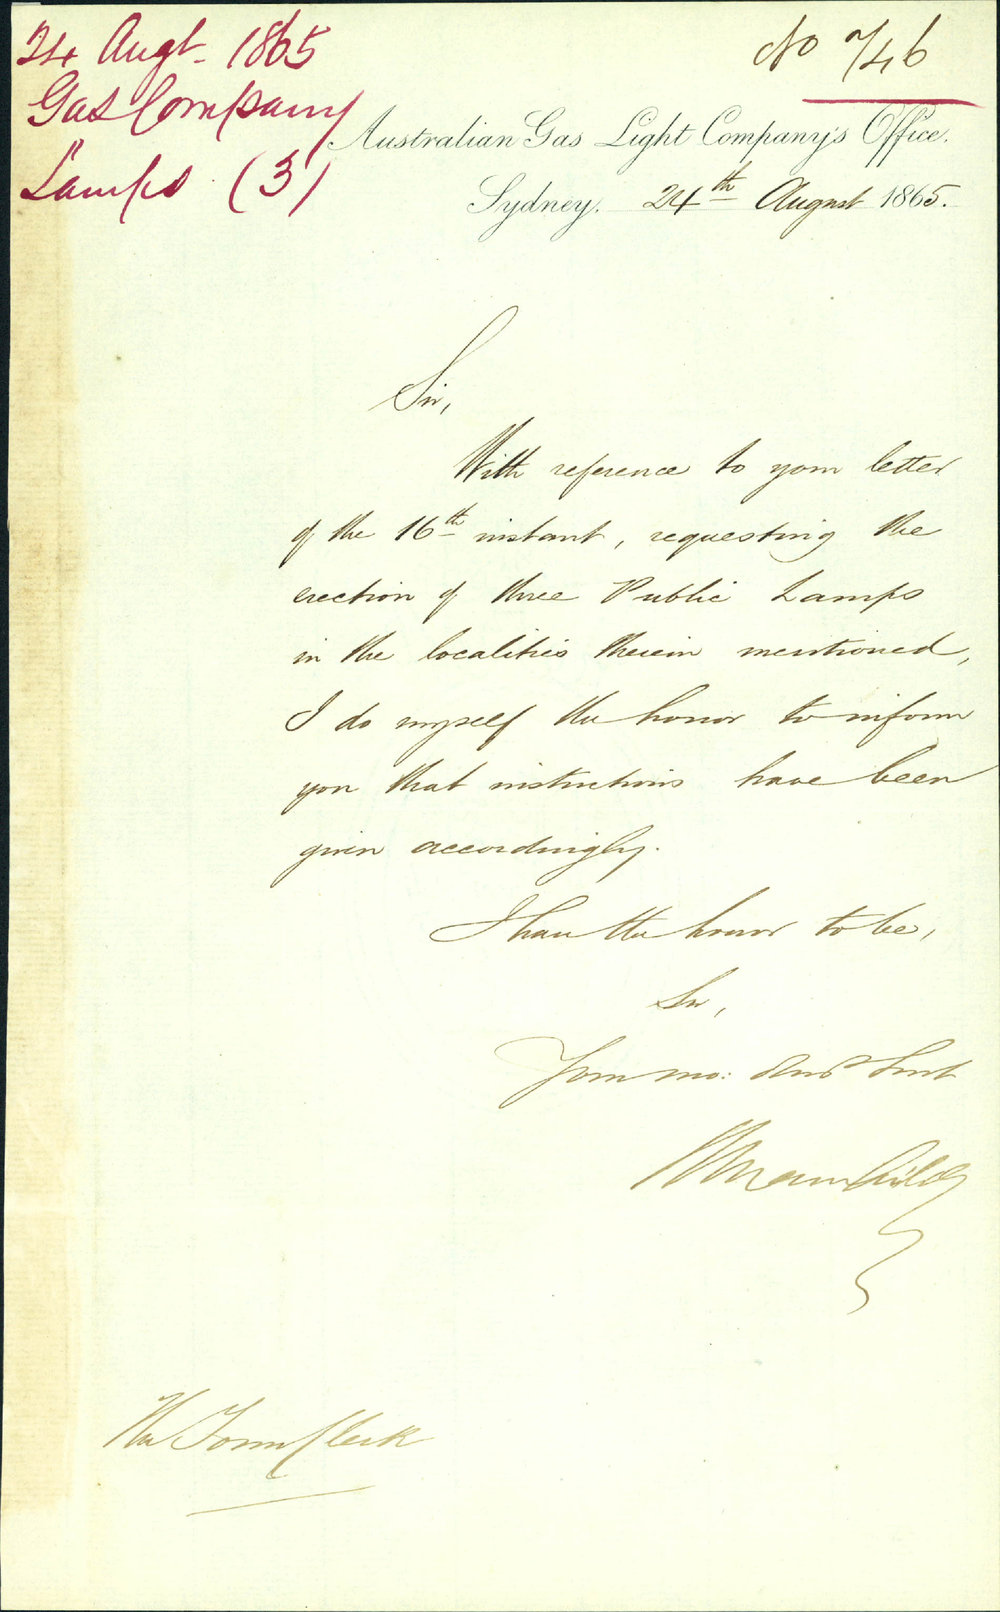 24 Augt. 1865
Gas Company
Lamps (3)
No 746
Australian Gas Light Company's Office.
Sydney. 24th August 1865.
Sir,
With reference to your letter
of the 16th instant, requesting the
erection of three Public Lamps
in the localities therein mentioned,
I do myself the honor to inform
you that instructions have been
given accordingly.
I have the honor to be,
Sir,
Your mo: Obt Servt
The Town Clerk